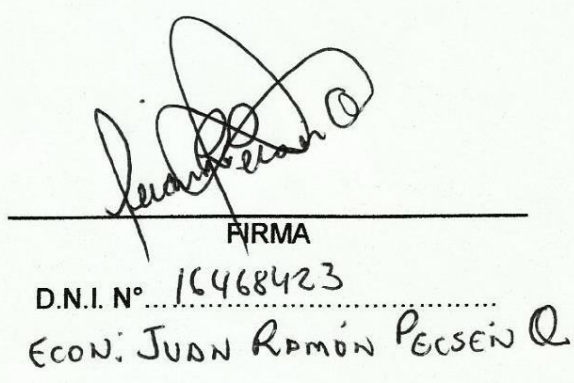 FIRMA
D.N.I. Nº...16468423......................
ECON: JUAN RAMÓN PECSEN Q